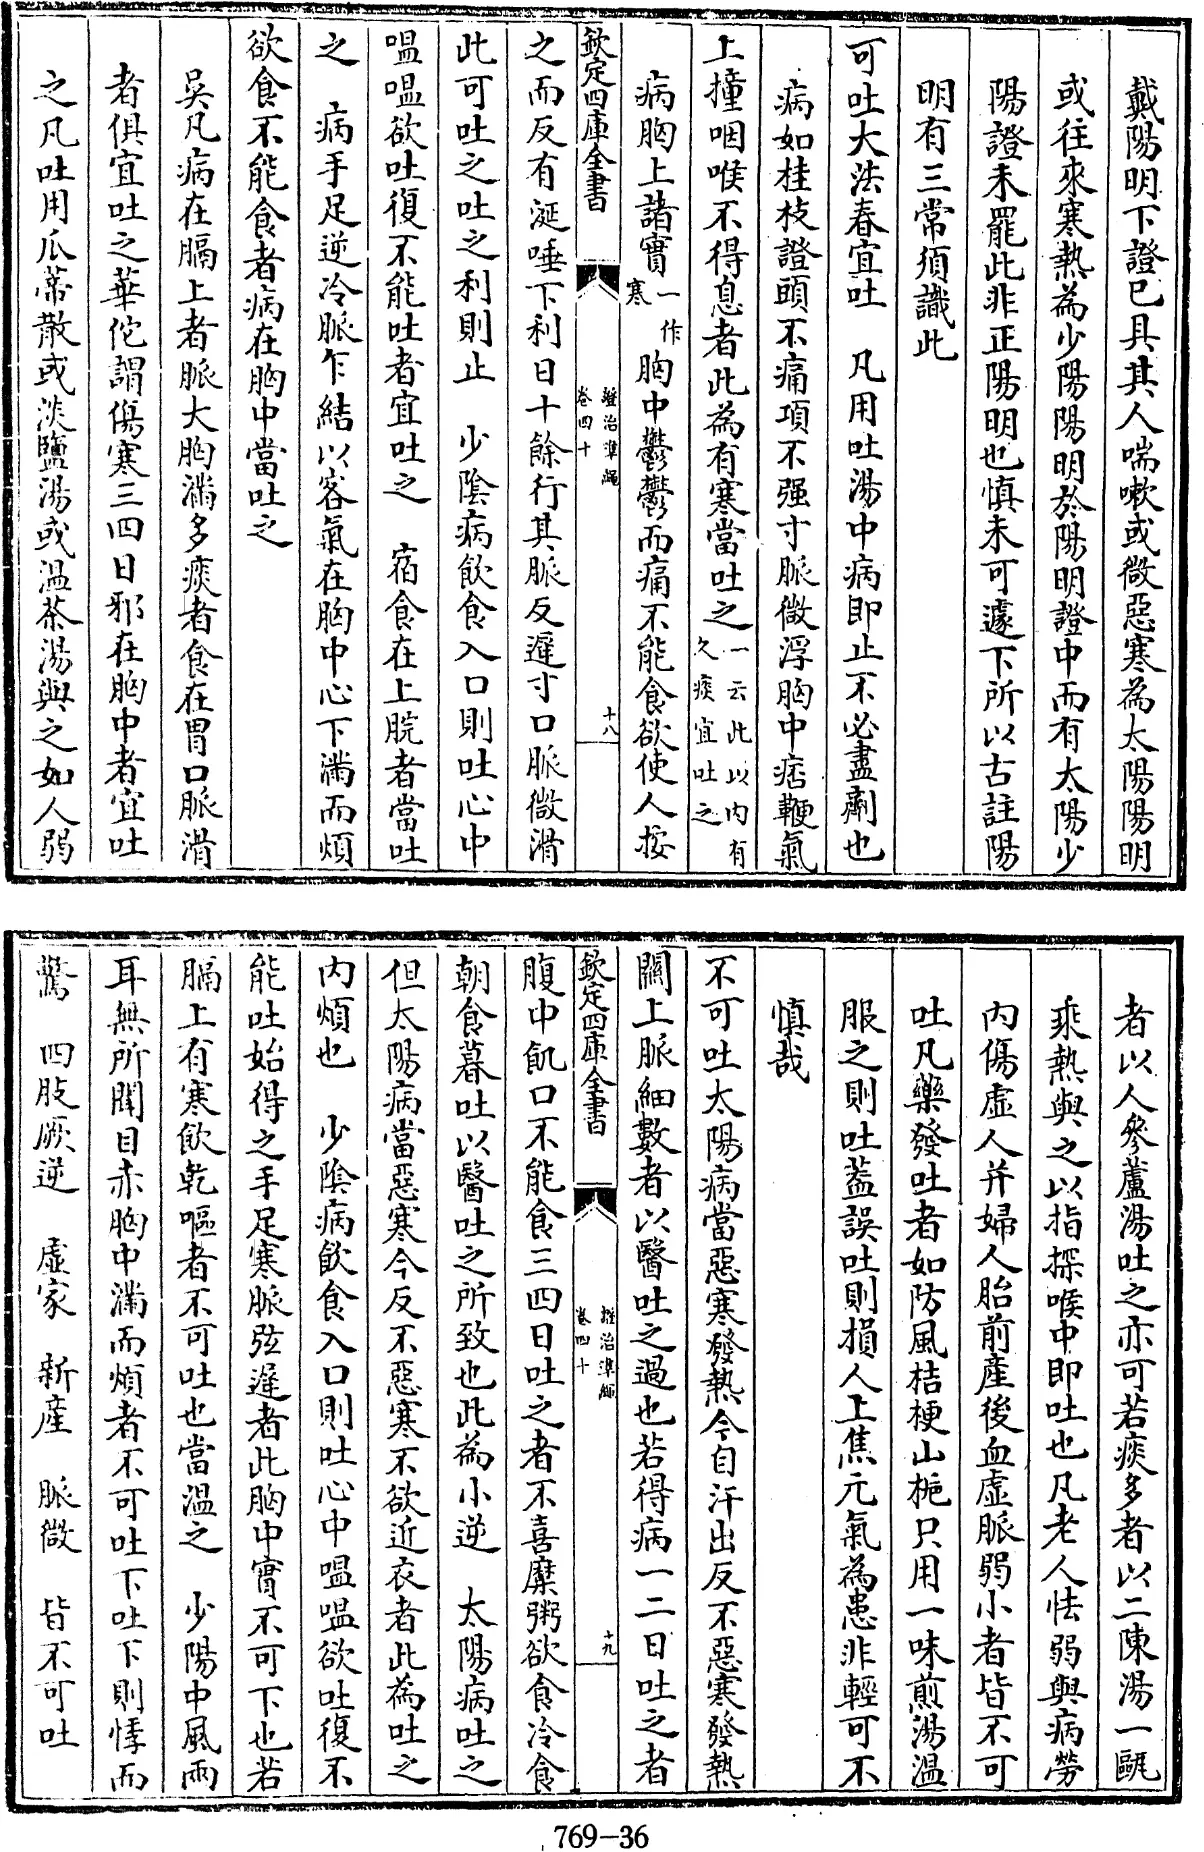 戴陽明下證已具其人喘嗽或微惡寒為太陽陽明
或往來寒熱為少陽陽明於陽明證中而有太陽少
陽證未罷此非正陽明也慎未可遽下所以古註陽
明有三常須識此
可吐大法春宜吐　凡用吐湯中病即止不必盡劑也
病如桂枝證頭不痛項不强寸脈微浮胸中痞鞕氣
上撞咽喉不得息者此為有寒當吐之一云此以内有久痰宜吐之
病胸上諸實一作寒胸中鬱鬱而痛不能食欲使人按
欽定四庫全書
證治準繩
卷四十
十八
之而反有涎唾下利日十餘行其脈反遲寸口脈微滑
此可吐之吐之利則止　少陰病飲食入口則吐心中
嗢嗢欲吐復不能吐者宜吐之　宿食在上脘者當吐
之　病手足逆冷脈乍結以客氣在胸中心下滿而煩
欲食不能食者病在胸中當吐之
吳凡病在膈上者脈大胸滿多痰者食在胃口脈滑
者俱宜吐之華佗謂傷寒三四日邪在胸中者宜吐
之凡吐用瓜蒂散或淡鹽湯或溫茶湯與之如人弱
者以人參蘆湯吐之亦可若痰多者以二陳湯一甌
乘熱與之以指探喉中即吐也凡老人怯弱與病勞
内傷虛人并婦人胎前產後血虛脈弱小者皆不可
吐凡藥發吐者如防風桔梗山梔只用一味煎湯溫
服之則吐葢誤吐則損人上焦元氣為患非輕可不
慎哉
不可吐太陽病當惡寒發熱今自汗出反不惡寒發熱
關上脈細數者以醫吐之過也若得病一二日吐之者
欽定四庫全書
證治準繩
卷四十
十九
腹中飢口不能食三四日吐之者不喜糜粥欲食冷食
朝食暮吐以醫吐之所致也此為小逆　太陽病吐之
但太陽病當惡寒今反不惡寒不欲近衣者此為吐之
内煩也　少陰病飲食入口則吐心中嗢嗢欲吐復不
能吐始得之手足寒脈弦遲者此胸中實不可下也若
膈上有寒飲乾嘔者不可吐也當溫之　少陽中風兩
耳無所聞目赤胸中滿而煩者不可吐下吐下則悸而
驚　四肢厥逆　虛家　新產　脈微　皆不可吐
769-36